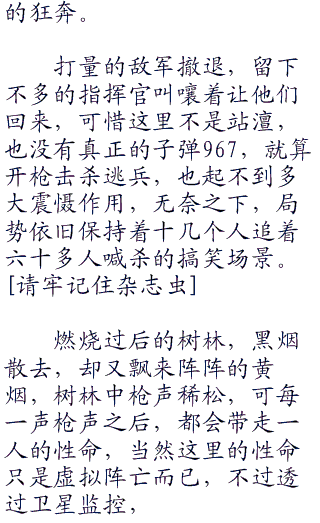 的狂奔。
打量的敌军撤退，留下
不多的指挥官叫嚷着让他们
回来，可惜这里不是站澶，
也没有真正的子弹967，就算
开枪击杀逃兵，也起不到多
大震慑作用，无奈之下，局
势依旧保持着十几个人追着
六十多人喊杀的搞笑场景。
[请牢记住杂志虫]
燃烧过后的树林，黑烟
散去，却又飘来阵阵的黄
烟，树林中枪声稀松，可每
一声枪声之后，都会带走一
人的性命，当然这里的性命
只是虚拟阵亡而已，不过透
过卫星监控，